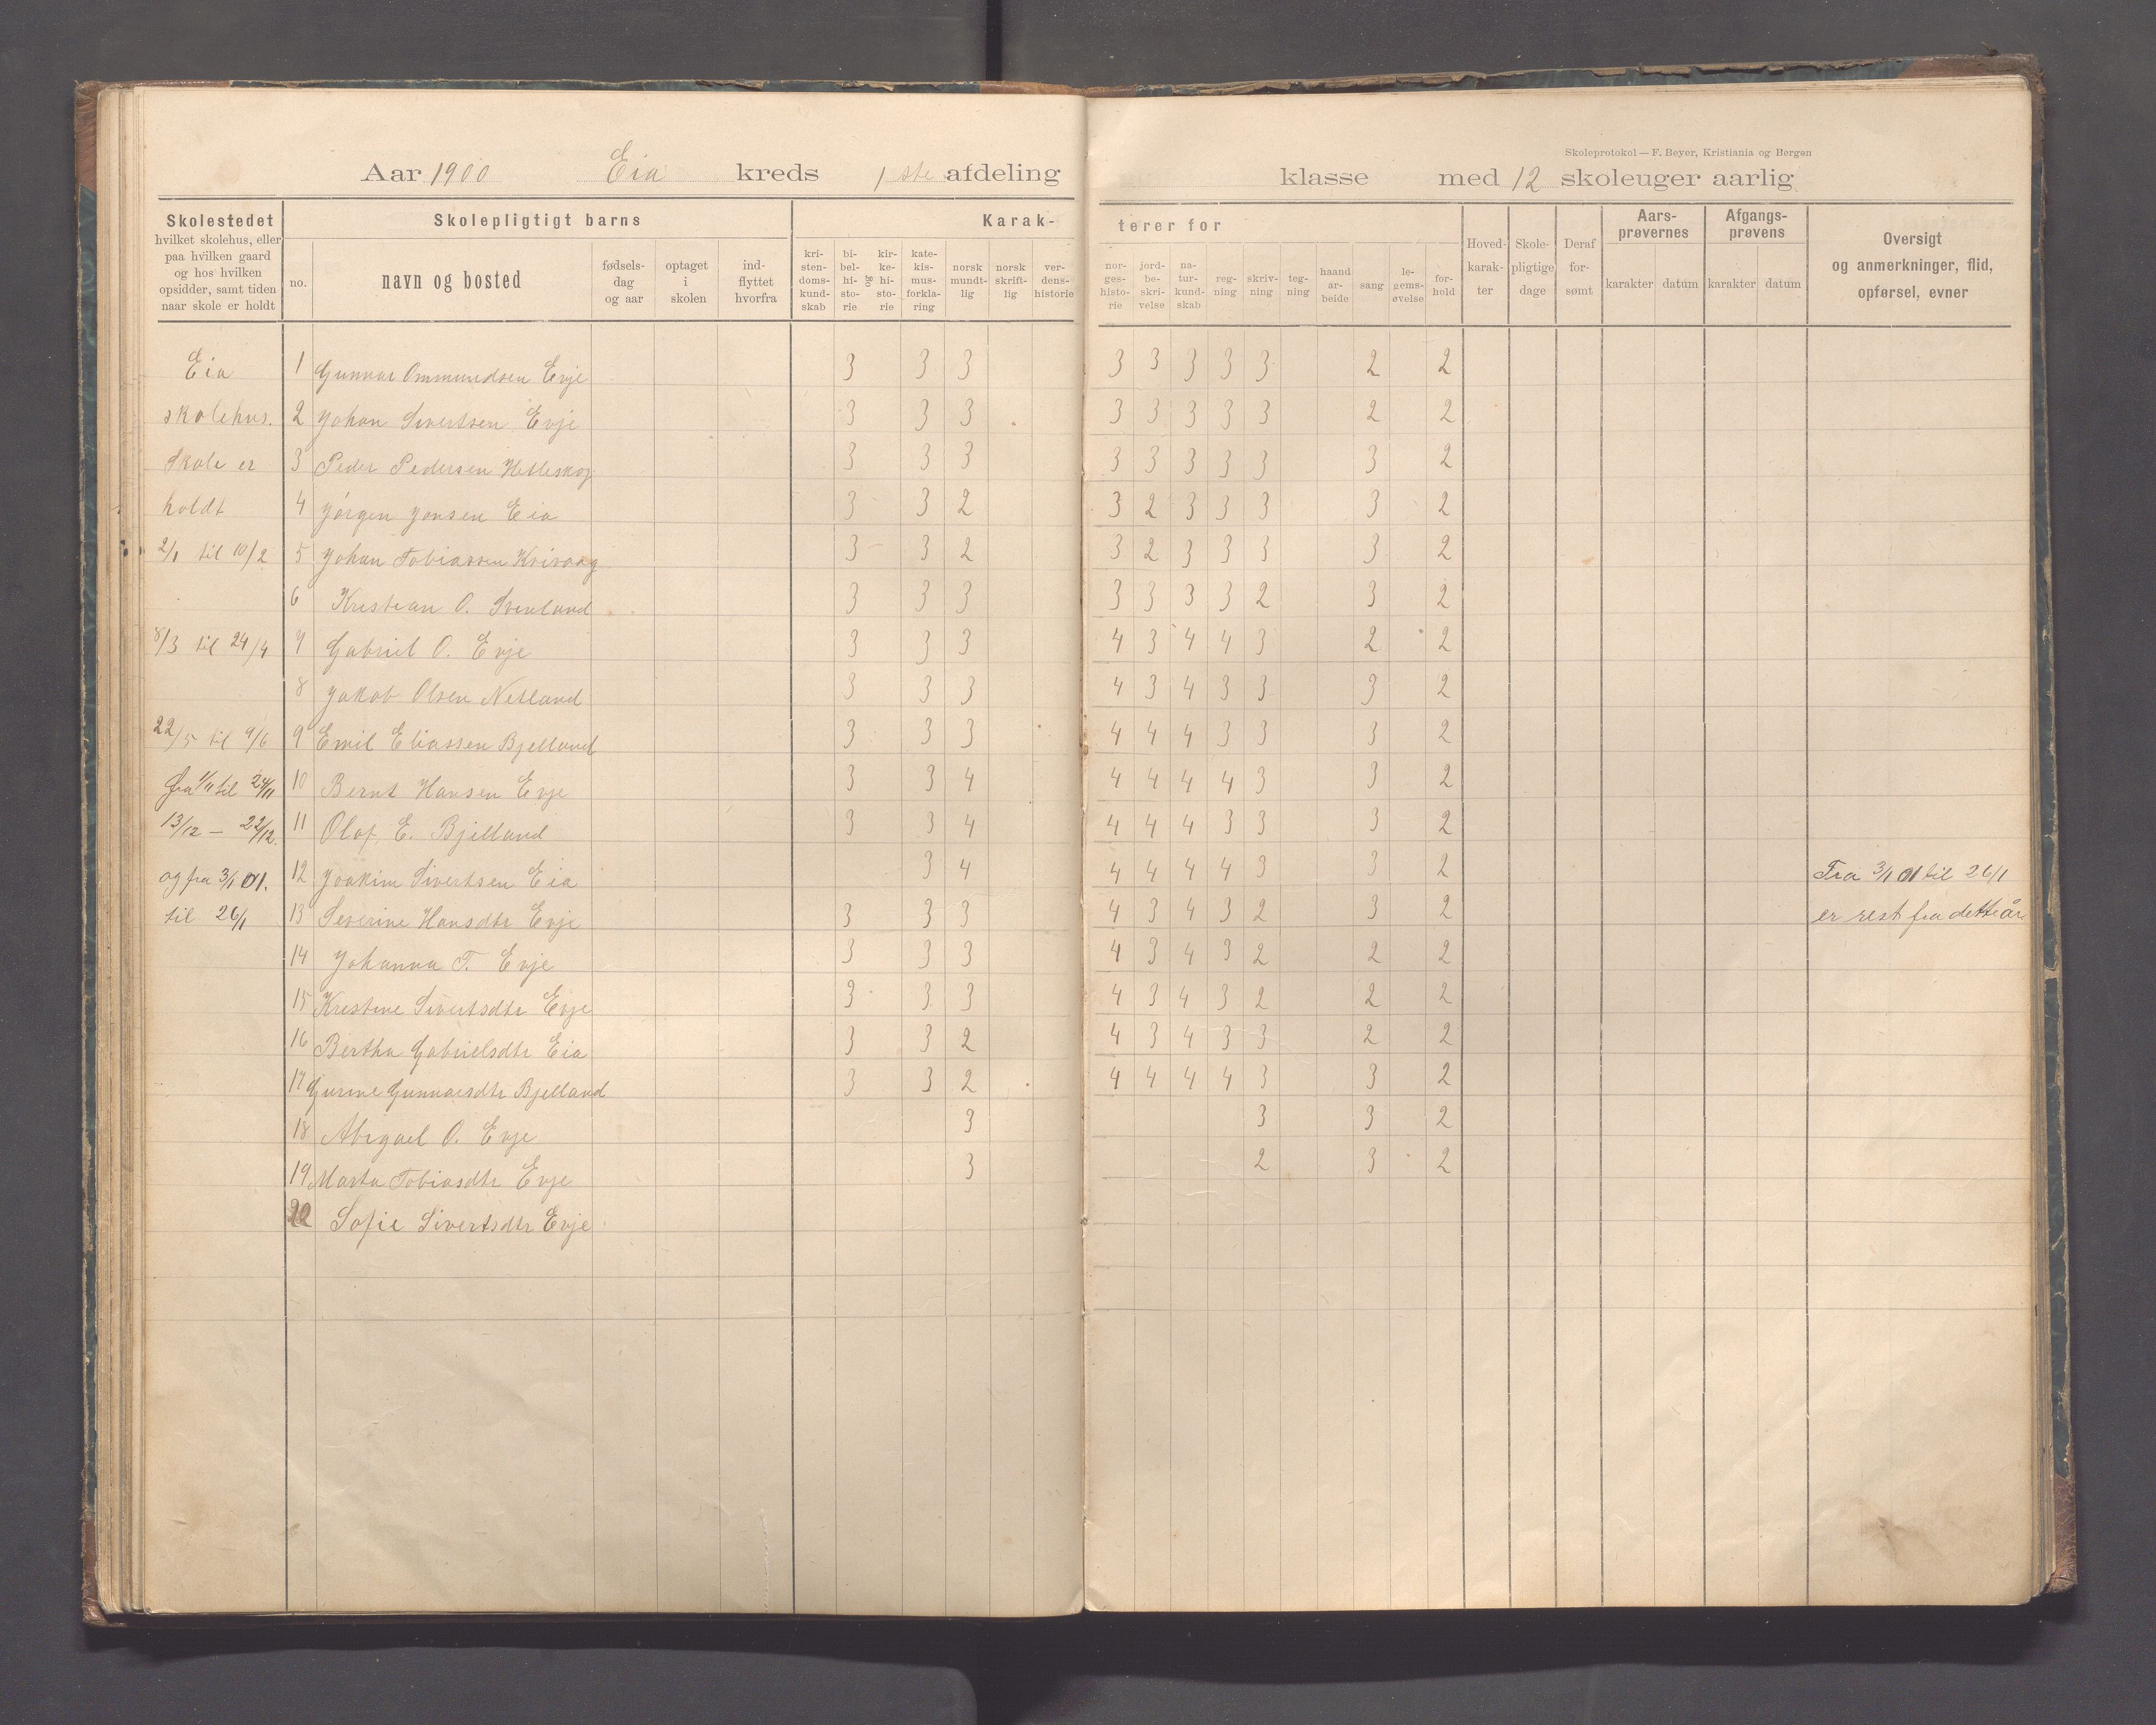 Skoleprotokol — F. Beyer, Kristiania og Bergen
Aar 1900 Eia kreds 1ste afdeling klasse med 12 skoleuger aarlig
Skolestedet
hvilket skolehus, eller
paa hvilken gaard
og hos hvilken
opsidder, samt tiden
naar skole er holdt
Skolepligtigt barns
no.
navn og bosted
fødsels-
dag
og aar
optaget
i
skolen
ind-
flyttet
hvorfra
Karak-
terer for
kri-
sten-
doms-
kund-
skab
bi-
bel-
hi-
sto-
rie
og
kir-
ke-
hi-
sto-
rie
kate-
kis-
mus-
forkla-
ring
norsk
mundt-
lig
norsk
skrift-
lig
ver-
dens-
historie
nor-
ges-
histo-
rie
jord-
be-
skri-
velse
na-
tur-
kund-
skab
reg-
ning
skriv-
ning
teg-
ning
haand
ar-
beide
sang
le-
gems-
øvelse
for-
hold
Hoved-
karak-
ter
Skole-
pligtige
dage
Deraf
for-
sømt
Aars-
prøvernes
karakter datum
Afgangs-
prøvens
karakter datum
Oversigt
og anmerkninger, flid,
opførsel, evner
Eia 1 Gunnar Ommundsen Evje 3 3 3 3 3 3 3 3 2 2
skolehus. 2 Johan Sivertsen Evje 3 3 3 3 3 3 3 3 2 2
Skole er 3 Peder Pedersen Hetleskog 3 3 3 3 3 3 3 3 3 2
holdt 4 Jørgen Jonsen Eia 3 3 2 3 2 3 3 3 3 2
2/1 til 10/2 5 Johan Tobiassen 3 3 2 3 2 3 3 3 3 2
6 Kristian O. 3 3 3 3 3 3 3 2 3 2
8/3 til 24/4 7 Gabriel O. Evje 3 3 3 4 3 4 4 3 2 2
8 Jakob Olsen Netland 3 3 3 4 3 4 3 3 3 2
22/5 til 9/6 9 Emil Eliassen Bjelland 3 3 3 4 4 4 3 3 3 2
fra 1/11 til 24/11 10 Bernt Hansen Evje 3 3 4 4 4 4 4 3 3 2
13/12 — 22/12. 11 Olaf E. Bjelland 3 3 4 4 4 4 3 3 3 2
og fra 3/1 01. 12 Joakim Sivertsen Eia 3 4 4 4 4 4 3 3 2 Fra 3/1 01 til 26/1
til 26/1 13 Severine Hansdtr Evje 3 3 3 4 3 4 3 2 3 2 er rest fra dette år
14 Johanna T. Evje 3 3 3 4 3 4 3 2 2 2
15 Kristine Sivertsdtr Evje 3 3 3 4 3 4 3 2 2 2
16 Bertha Gabrielsdtr Eia 3 3 2 4 3 4 3 3 2 2
17 Gurine Gunnarsdtr Bjelland 3 3 2 4 4 4 4 3 3 2
18 Abigael O. Evje 3 3 3 2
19 Marta Tobiasdtr Evje 3 2 3 2
20 Sofie Sivertsdtr Evje